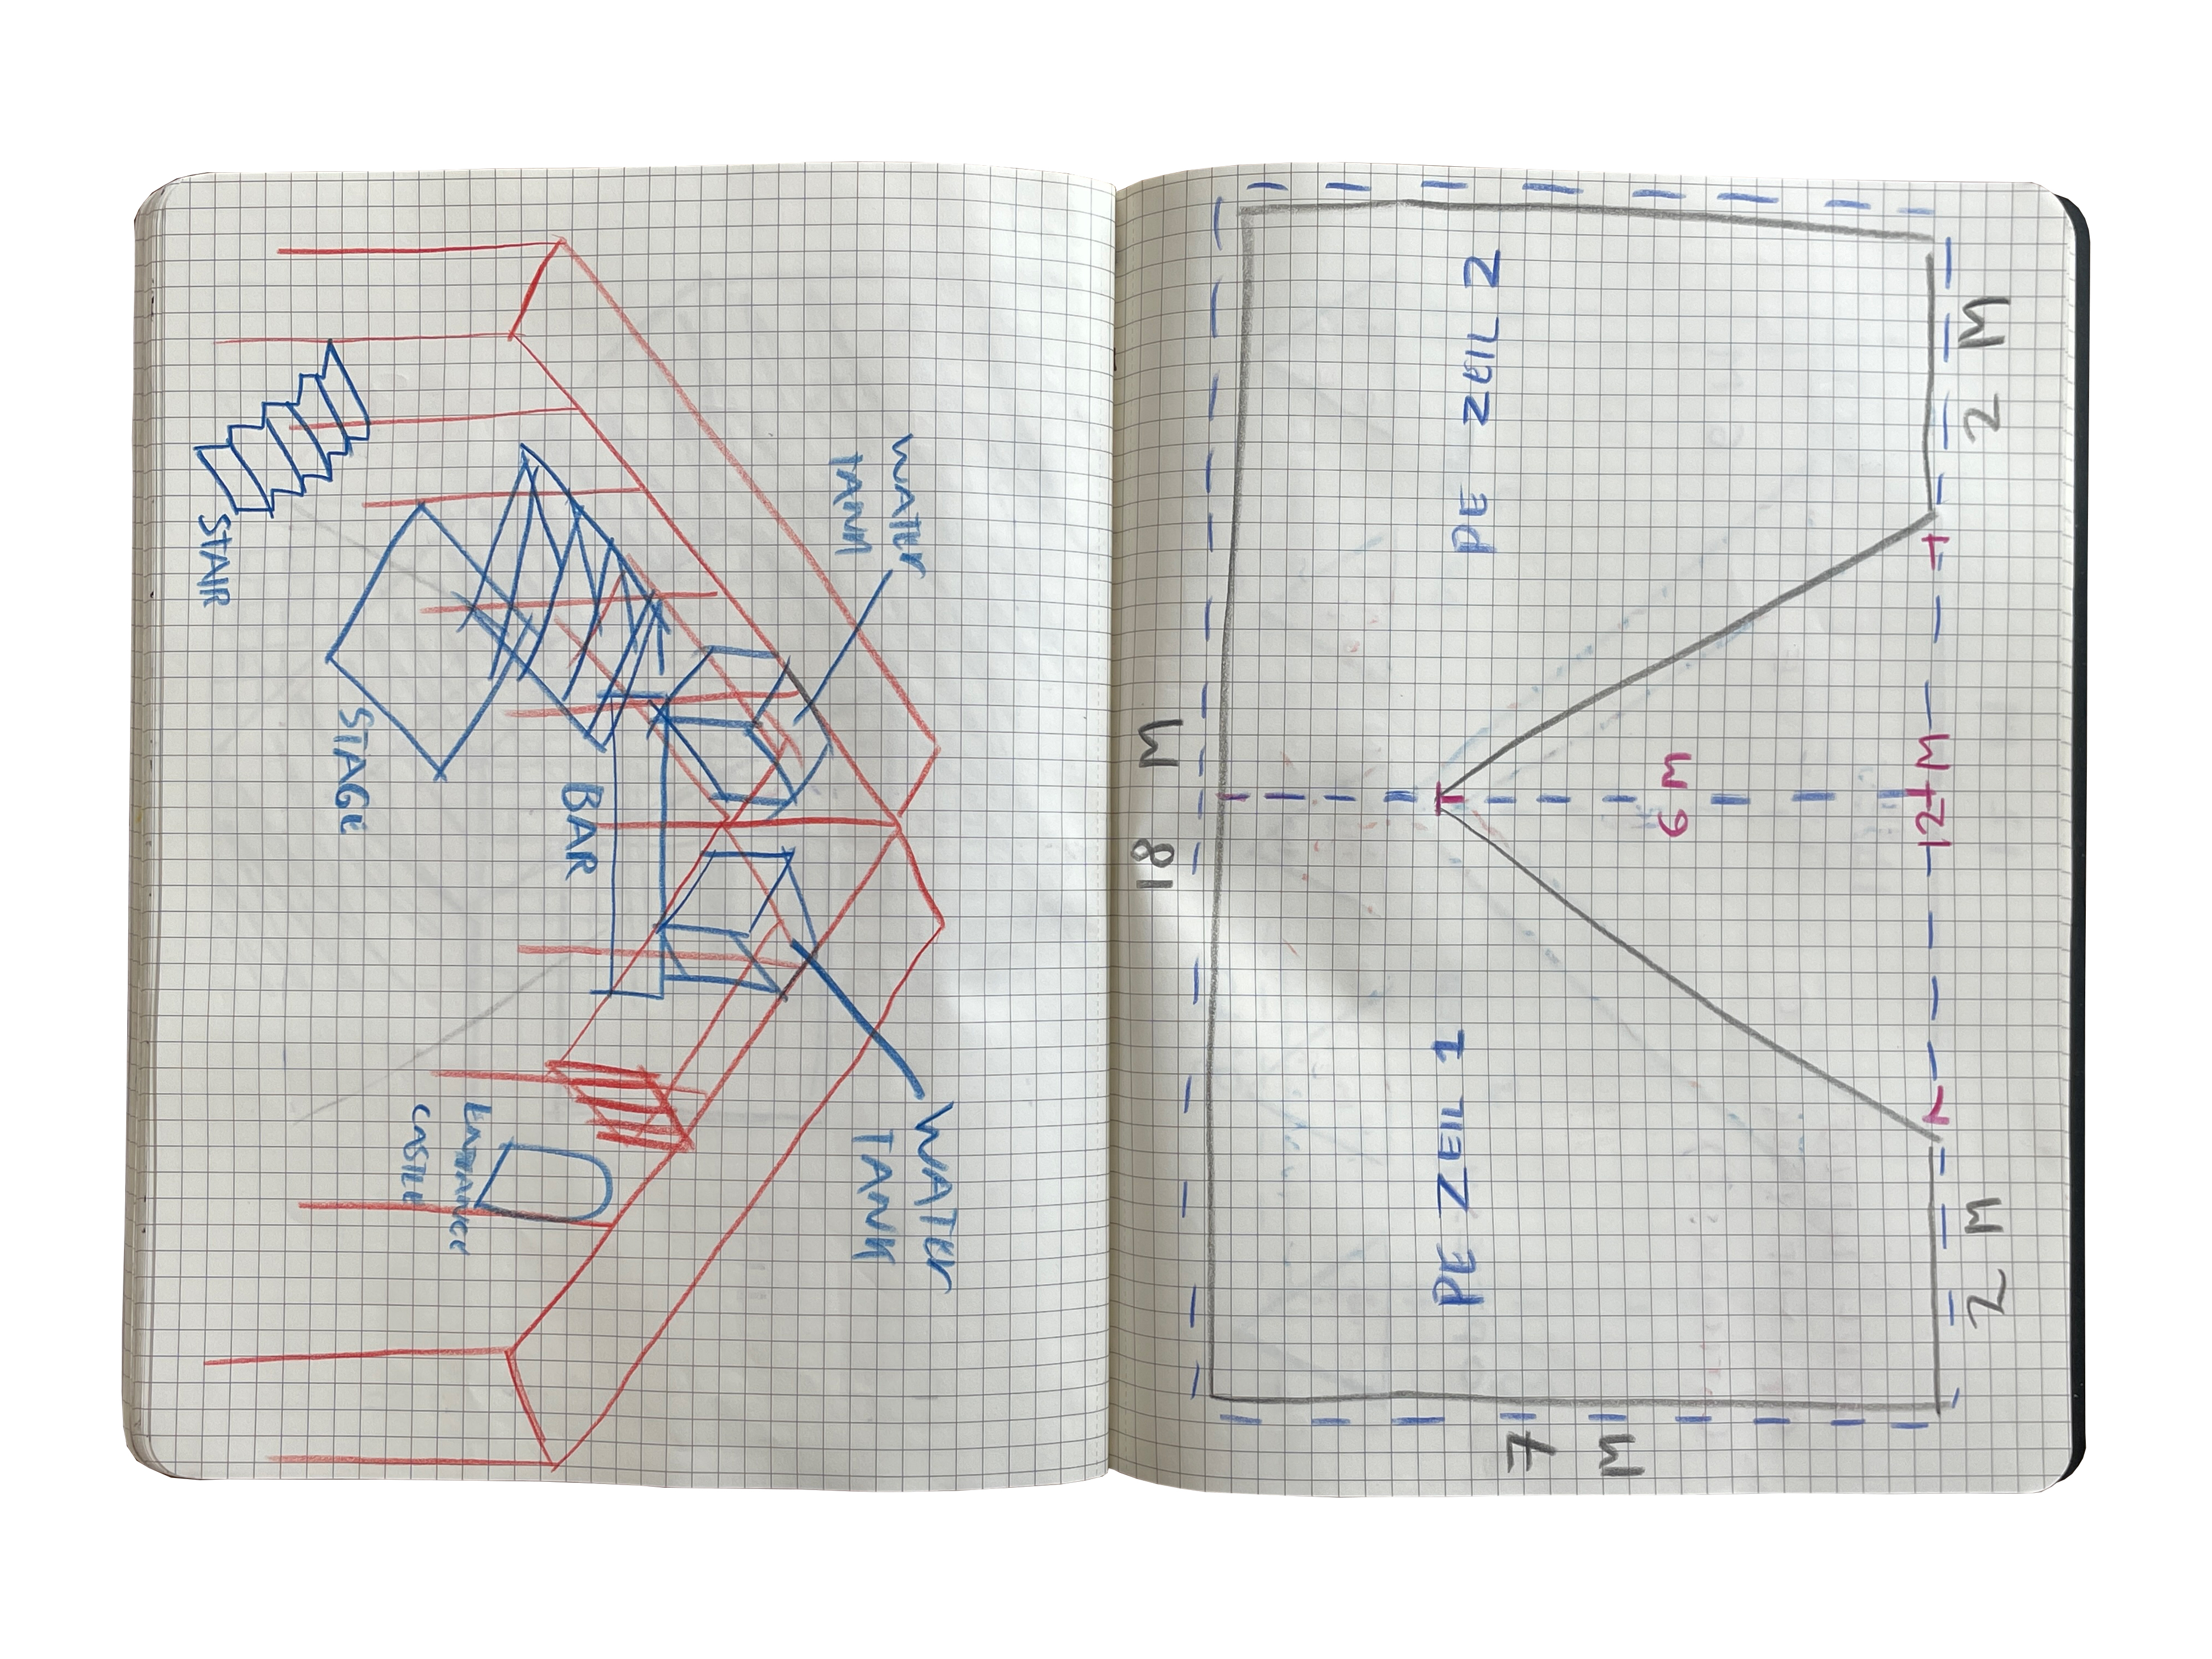 WATER
TANK
STAIR
STAGE
BAR
WATER
TANK
ENTRANCE
CASTLE
PE ZEIL 2
PE ZEIL 1
18 M
6 M
12 M
2 M
2 M
7 M